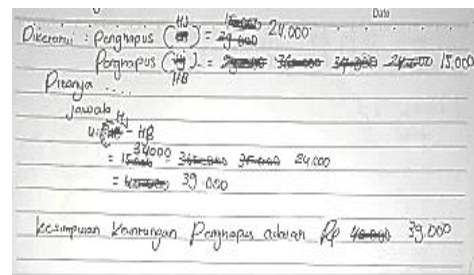 Date
Diketahui : Penghapus (HJ) = 24.000
Penghapus (HB) = 15.000
Ditanya ....
Jawab
HJ - HB
= 34000 24.000
= 39.000
Kesimpulan Keuntungan Penghapus adalah Rp 39.000